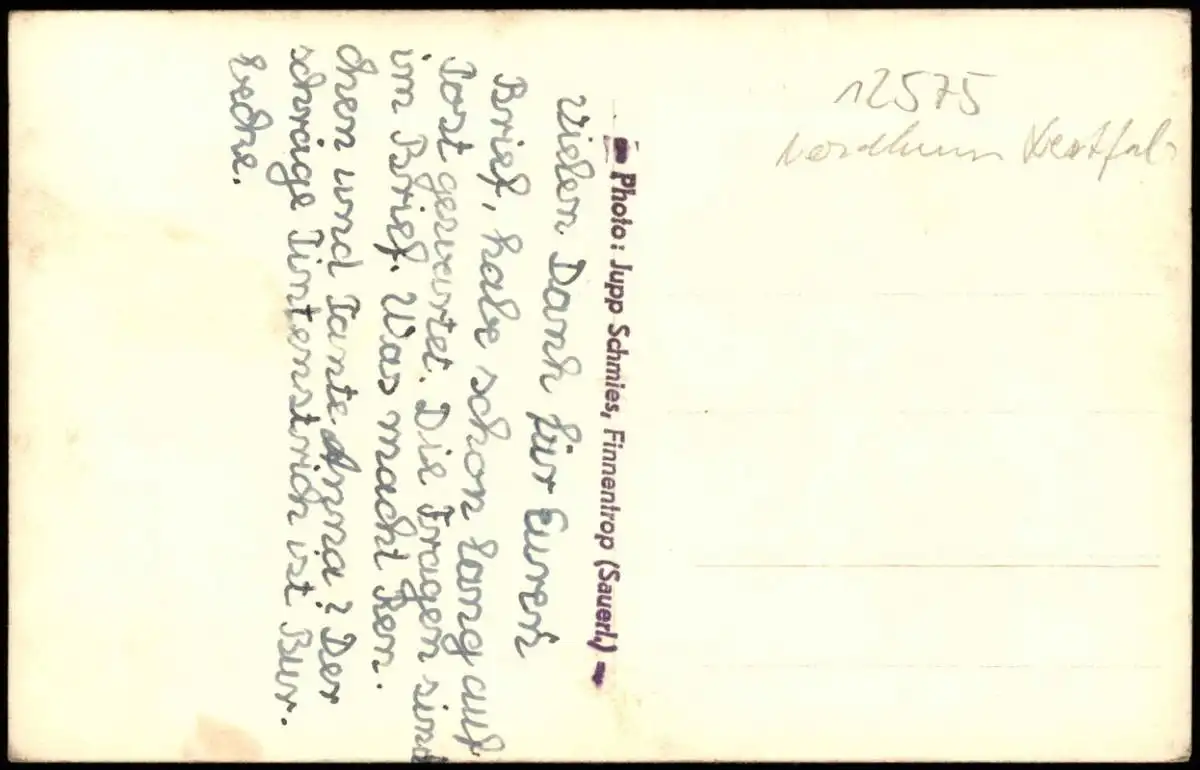 Vielen Dank für Euren
Brief, habe schon lang auf
Post gewartet. Die Fragen sind
im Brief. Was macht Ren.
chen und Tante Anna? Der
schräge Tintenstrich ist Bur.
leche.
- Photo: Jupp Schmies, Finnentrop (Sauerl.) -
12575
Westfal